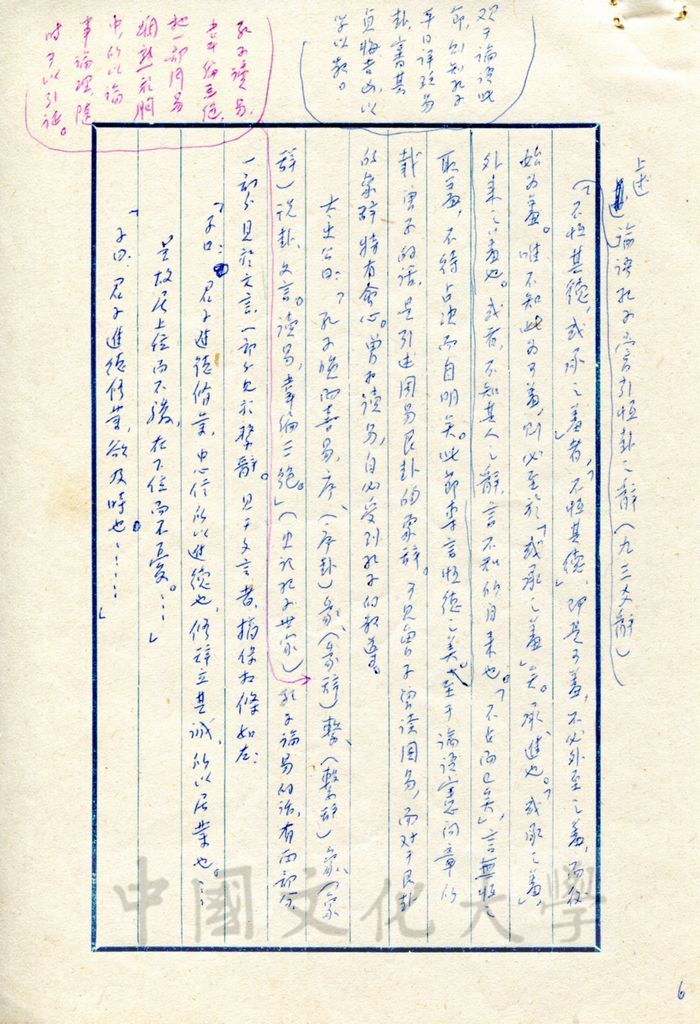 上述論語孔子嘗引恒卦之辭(九三爻辭)
「不恒其德,或承之羞者,不恒其德,即是可羞,不必外至之羞,而後
始为羞。唯不知此为可羞,則必至於「或承之羞」矣。承,進也。「或承之羞」
外來之羞也。或者,不知其人之辭,言不知的自来也。「不占而已矣」,言無恒之
取羞,不待占决而自明矣。此節孝言恒德之美也。至于論語憲問章的
載曾子的話,是引述周易艮卦的象辞。可見曾子曾读周易,而对于艮卦
的象辞特有會心。曾切读易,自必受到孔子的教導。
太史公曰:「孔子晚而喜易,序、(序卦)彖、(彖辞)繫、(繫辞)象、(象
辞)說卦、文言。读易,韋編三絶。」(史记孔子世家)孔子論易的话,有两部分,
一部分見於文言,一部分見於繫辭。見于文言者,摘録数條如左:
「子曰:君子進德修業,忠信所以進德也,修辞立其誠,所以居業也。…
是故居上位而不驕,在下位而不憂。…」
「子曰:君子進德修業,欲及時也……」
观于論语此
節,則知孔子
平日詳玩易
卦,書其
貞悔吉凶,以
学以教。
孔子读易,
韋编三绝,
把一部周易
烂熟於胸
中,所以論
事論理隨
时可以引证。
6
中國文化大學